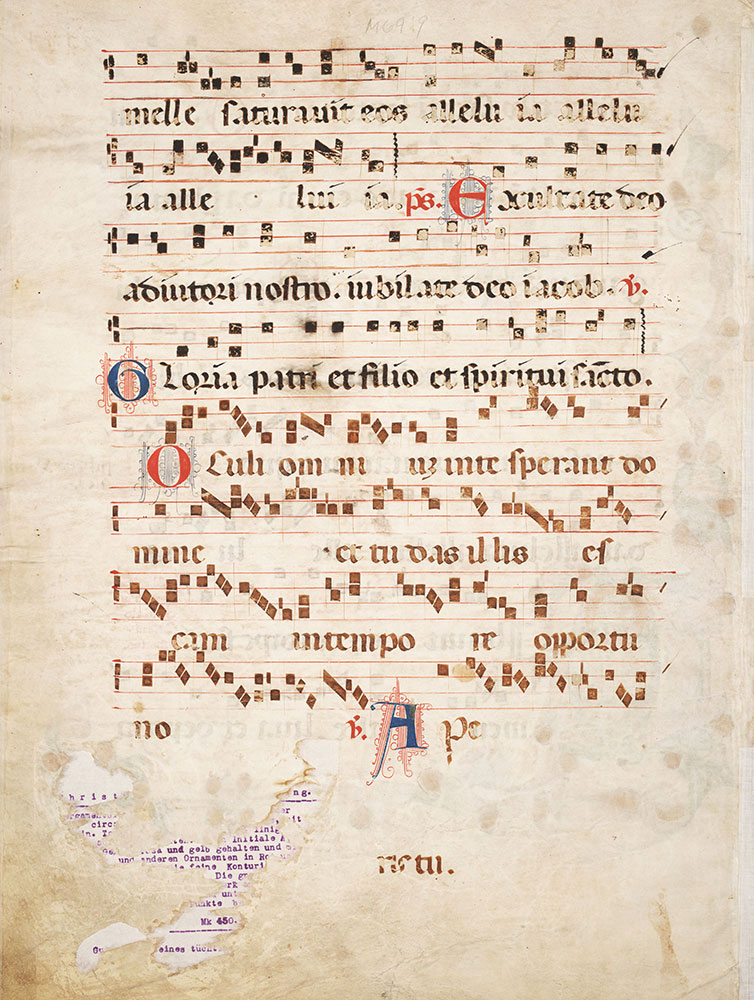 M6939
melle saturavit eos allelu ia allelu
ia alle lui ia. ps. Exultate deo
adiutori nostro. iubilate deo iacob. v.
Gloria patri et filio et spiritui sancto.
Oculi omni uz inte sperant do
mine et tu das illis es
cam intempo re opportu
no v. Ape
ris tu.
christ ng.
circ
in. T
initiale A
und gelb gehalten und
und anderen Ornamenten in Ro
feine Konturi
Die gr
unt
Punkte b
Mk 450.
eines tücht